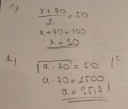 c)
x+70 / 2 = 50
x+70=100
x=30
d) √a·70 = 50 |²
a·70=2500
a=35,7